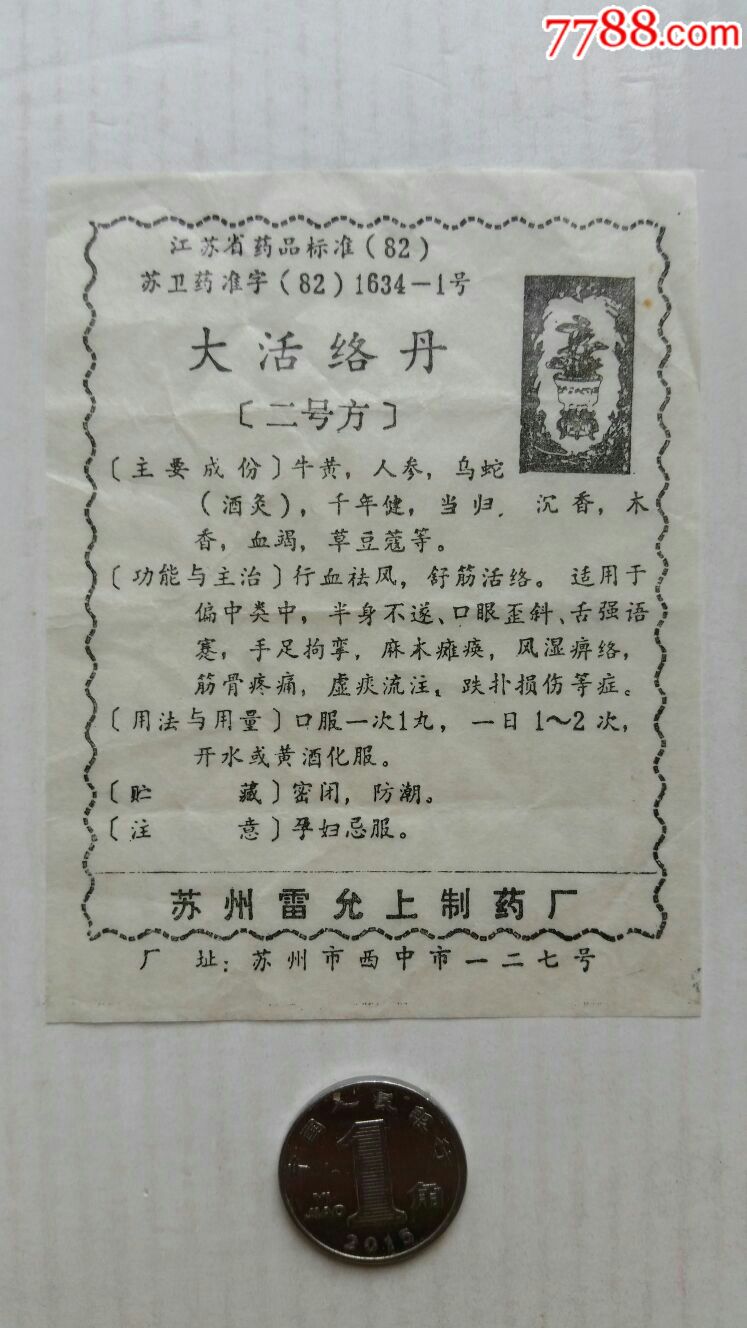 7788.com
江苏省药品标准(82)
苏卫药准字(82)1634-1号
大活络丹
〔二号方〕
〔主要成份〕牛黄，人参，乌蛇
(酒灸)，千年健，当归，沉香，木
香，血竭，草豆蔻等。
〔功能与主治〕行血祛风，舒筋活络。适用于
偏中类中，半身不遂、口眼歪斜、舌强语
蹇，手足拘挛，麻木瘫痪，风湿痹络，
筋骨疼痛，虚痰流注、跌扑损伤等症。
〔用法与用量〕口服一次1丸，一日1～2次，
开水或黄酒化服。
〔贮藏〕密闭，防潮。
〔注意〕孕妇忌服。
苏州雷允上制药厂
厂址：苏州市西中市一二七号
中国人民银行
1角
YI
JIAO
2015